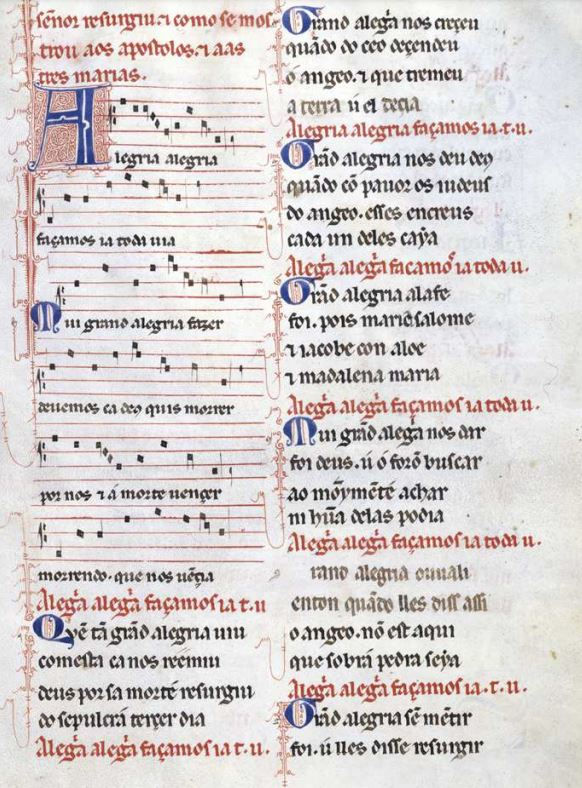 sẽnor resurgiu. ⁊ como se mos
trou aos apostolos. ⁊ aas
tres marias.
Alegria alegria
façamos ia toda uia
Mui grand alegria fazer
deuemos ca de9 quis morrer
por nos ⁊ a morte uençer
morrendo. que nos uẽçia
Alegͣa alegͣa façamos ia t. u
Quẽ tã grãd alegria uiu
comesta ca nos reemiu
deus por sa morte resurgiu
do sepulcrá terçer dia
Alegͣa alegͣa façamos ia t. u.
Grand alegͣa nos creçeu
quãdo do ceo deçendeu
o angeo. ⁊ que tremeu
a terra u el deçia
Alegria alegria façamos ia. t. u.
Grãd alegria nos deu de9
quãdo cõ pauor os iudeus
do angeo. esses encreus
cada un deles caya
Alegͣa alegͣa façamos ia toda u.
Grãd alegria alafe
foi. pois maria salome
⁊ iacobe con aloe
⁊ madalena maria
Alegͣa alegͣa façamos ia toda u.
Mui grãd alegͣa nos dar
foi deus. u ó forõ buscar
ao mõymẽte achar
ni hũa delas podia
Alegͣa alegͣa façamos ia toda u.
rand alegria
enton quãdo lles diss assi
o angeo. nõ est aqui
que sobrá pedra seya
Alegͣa alegͣa façamos ia. t. u.
Grãd alegria sẽ mẽtir
foi. u lles disse resurgir